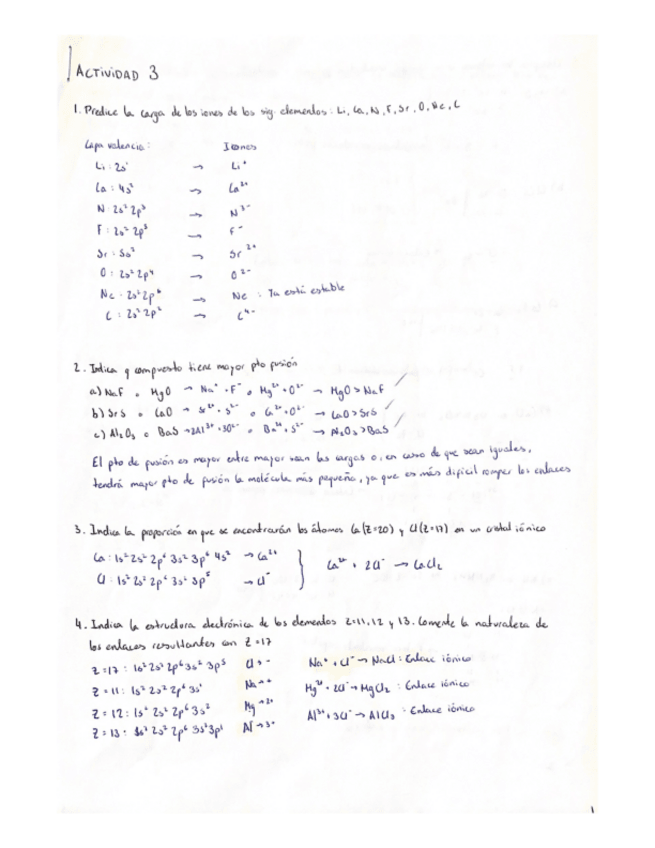 ACTIVIDAD 3
1. Predice la carga de los iones de los sig. elementos: Li, Ca, N, F, Sr, O, Ne, C
Capa valencia: Iones
Li: 2s¹ → Li⁺
Ca: 4s² → Ca²⁺
N: 2s² 2p³ → N³⁻
F: 2s² 2p⁵ → F⁻
Sr: 5s² → Sr²⁺
O: 2s² 2p⁴ → O²⁻
Ne: 2s² 2p⁶ → Ne: Ya está estable
C: 2s² 2p² → C⁴⁻
2. Indica q compuesto tiene mayor pto fusión
a) NaF o MgO → Na⁺ + F⁻ o Mg²⁺ + O²⁻ → MgO > NaF
b) SrS o CaO → Sr²⁺ + S²⁻ o Ca²⁺ + O²⁻ → CaO > SrS
c) Al₂O₃ o BaS → 2Al³⁺ + 3O²⁻ o Ba²⁺ + S²⁻ → Al₂O₃ > BaS
El pto de fusión es mayor entre mayor sean las cargas o, en caso de que sean iguales,
tendrá mayor pto de fusión la molécula más pequeña, ya que es más difícil romper los enlaces
3. Indica la proporción en que se encontrarán los átomos Ca (Z=20) y Cl (Z=17) en un cristal iónico
Ca: 1s² 2s² 2p⁶ 3s² 3p⁶ 4s² → Ca²⁺
Cl: 1s² 2s² 2p⁶ 3s² 3p⁵ → Cl⁻
Ca²⁺ + 2Cl⁻ → CaCl₂
4. Indica la estructura electrónica de los elementos Z=11, 12 y 13. Comente la naturaleza de
los enlaces resultantes con Z=17
Z=17: 1s² 2s² 2p⁶ 3s² 3p⁵ Cl → - Na⁺ + Cl⁻ → NaCl: Enlace iónico
Z=11: 1s² 2s² 2p⁶ 3s¹ Na → + Mg²⁺ + 2Cl⁻ → MgCl₂: Enlace iónico
Z=12: 1s² 2s² 2p⁶ 3s² Mg → 2+ Al³⁺ + 3Cl⁻ → AlCl₃: Enlace iónico
Z=13: 1s² 2s² 2p⁶ 3s² 3p¹ Al → 3+